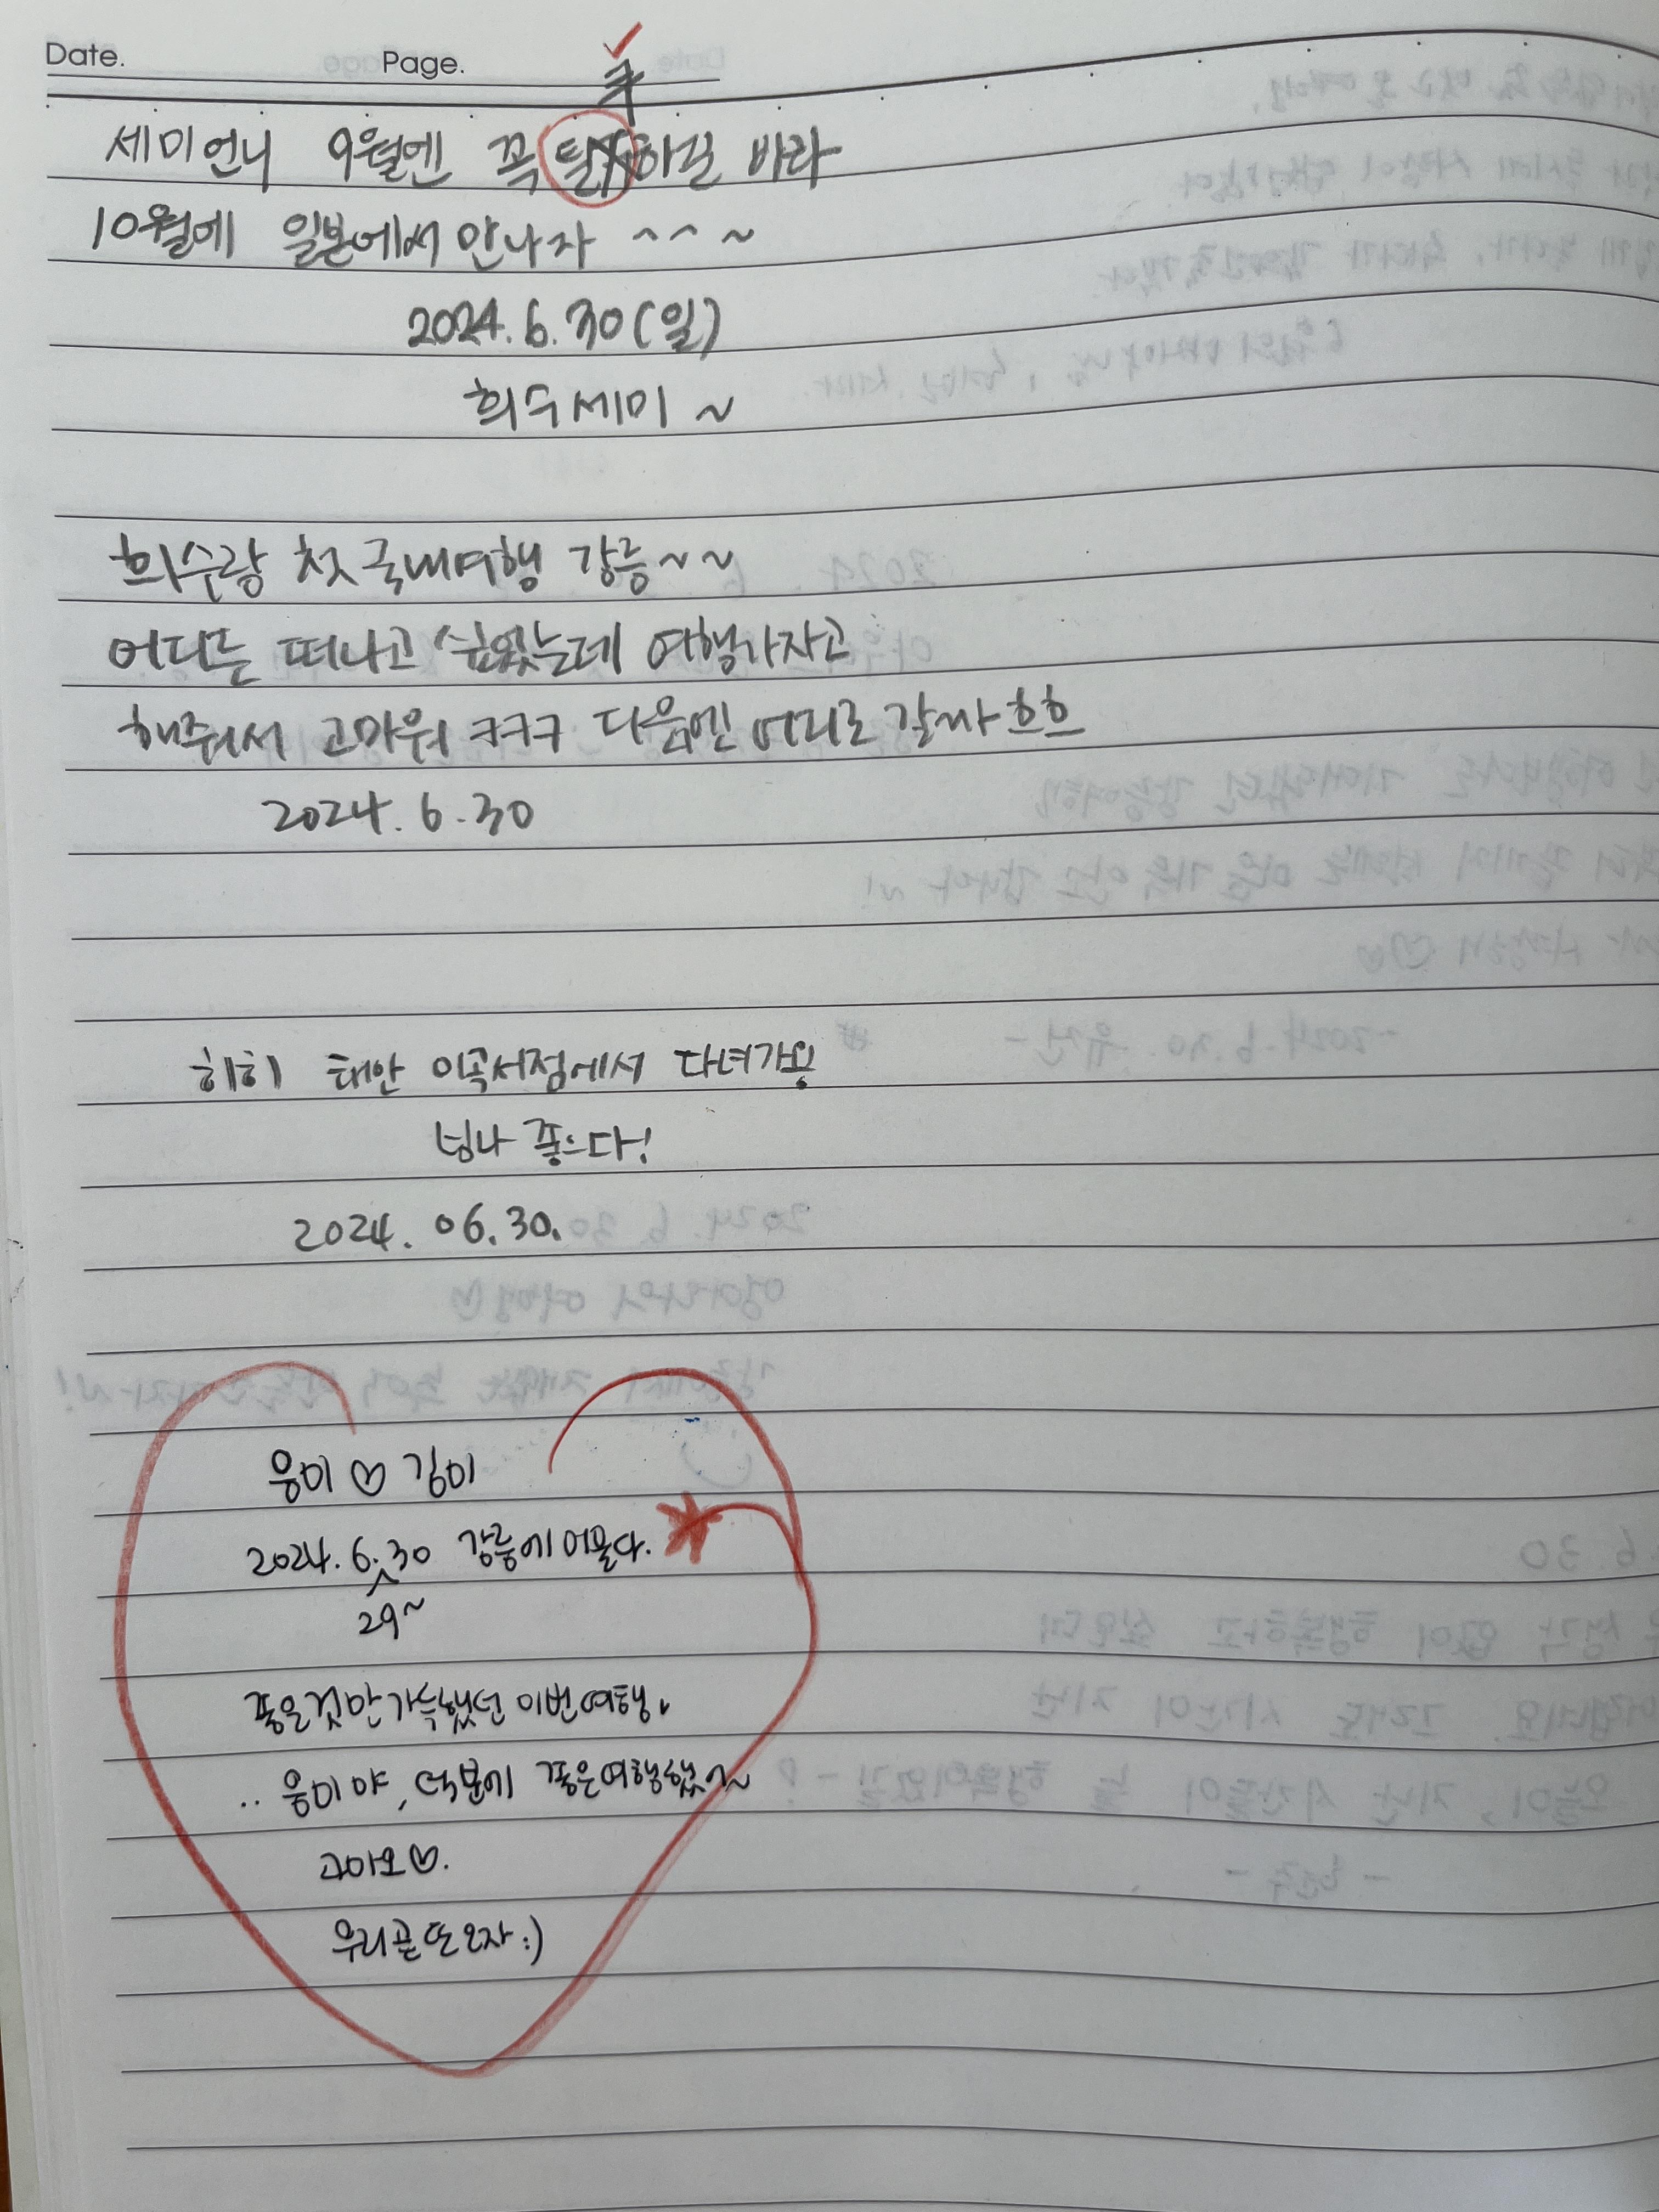 Date. Page.
세미언니 9월엔 꼭 하길 바라
10월에 일본에서 만나자 ~~ ~
2024.6.30(일)
희수세미 ~
희수랑 첫 국내여행 강릉~~
어디든 떠나고 싶었는데 여행가자고
해줘서 고마워 ㅋㅋㅋ 다음엔 어디로 갈까 흐흐
2024.6.30
히히 태안 이곡서점에서 다녀가용
넘나 좋으다!
2024. 06.30.
웅이 ♡ 김이
2024.6.30 강릉에 머물다.
29~
좋은것만 가득했던 이번여행,
.. 웅이야, 덕분에 좋은여행했어~
고마오♡.
우리곧또오자:)